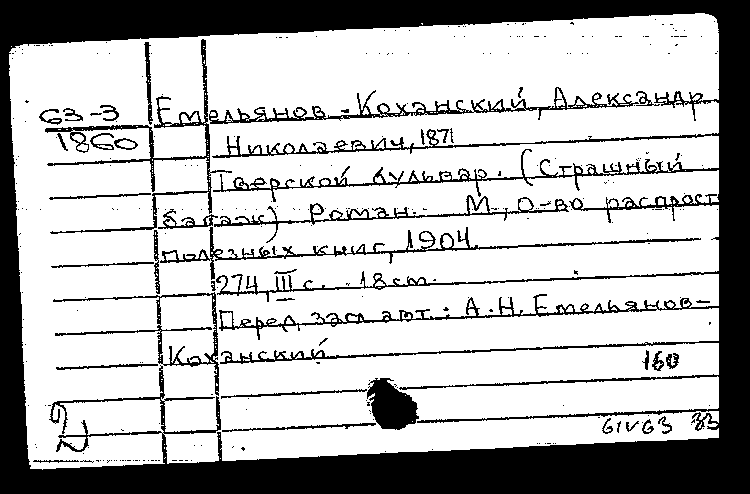 63-3 Емельянов-Коханский, Александр
1860 Николаевич, 1871
Тверской бульвар. (Страшный
багаж). Роман. М., О-во распрост
полезных книг, 1904.
274, III с. 18 см.
Перед загл авт.: А.Н. Емельянов-
Коханский.
160
2
61V63 33